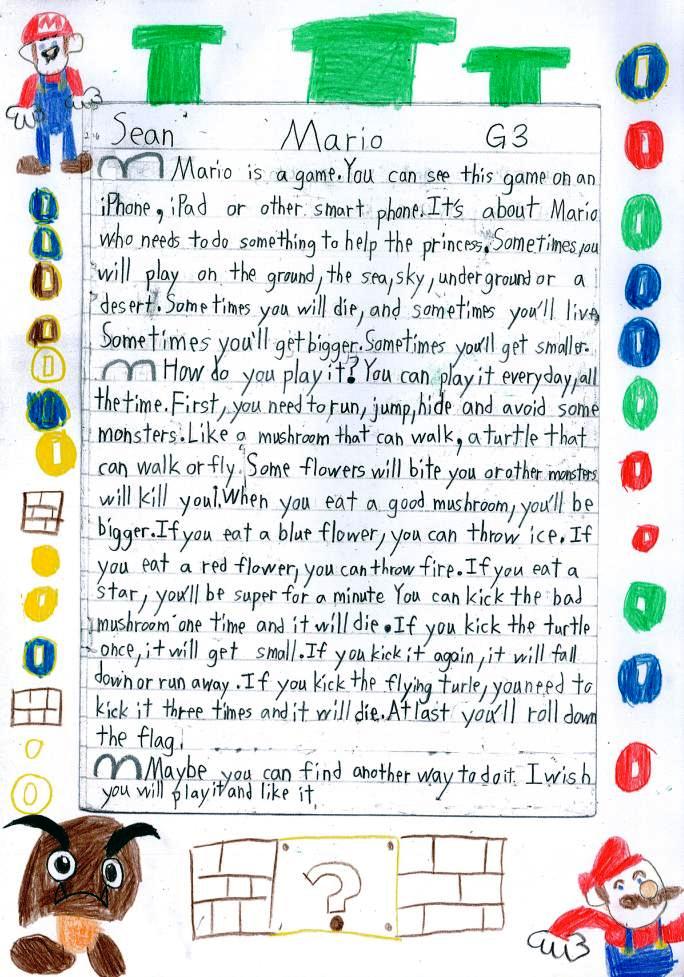 Sean Mario G3
Mario is a game. You can see this game on an
iPhone, iPad or other smart phone. It's about Mario
who needs to do something to help the princess. Sometimes you
will play on the ground, the sea, sky, underground or a
desert. Sometimes you will die, and sometimes you'll live
Sometimes you'll get bigger. Sometimes you'll get smaller.
How do you play it? You can play it everyday, all
the time. First, you need to run, jump, hide and avoid some
monsters. Like a mushroom that can walk, a turtle that
can walk or fly. Some flowers will bite you or other monsters
will kill you!. When you eat a good mushroom, you'll be
bigger. If you eat a blue flower, you can throw ice. If
you eat a red flower, you can throw fire. If you eat a
star, you'll be super for a minute You can kick the bad
mushroom one time and it will die. If you kick the turtle
once, it will get small. If you kick it again, it will fall
down or run away. If you kick the flying turle, you need to
kick it three times and it will die. At last you'll roll down
the flag.
Maybe you can find another way to do it. I wish
you will play it and like it.
?